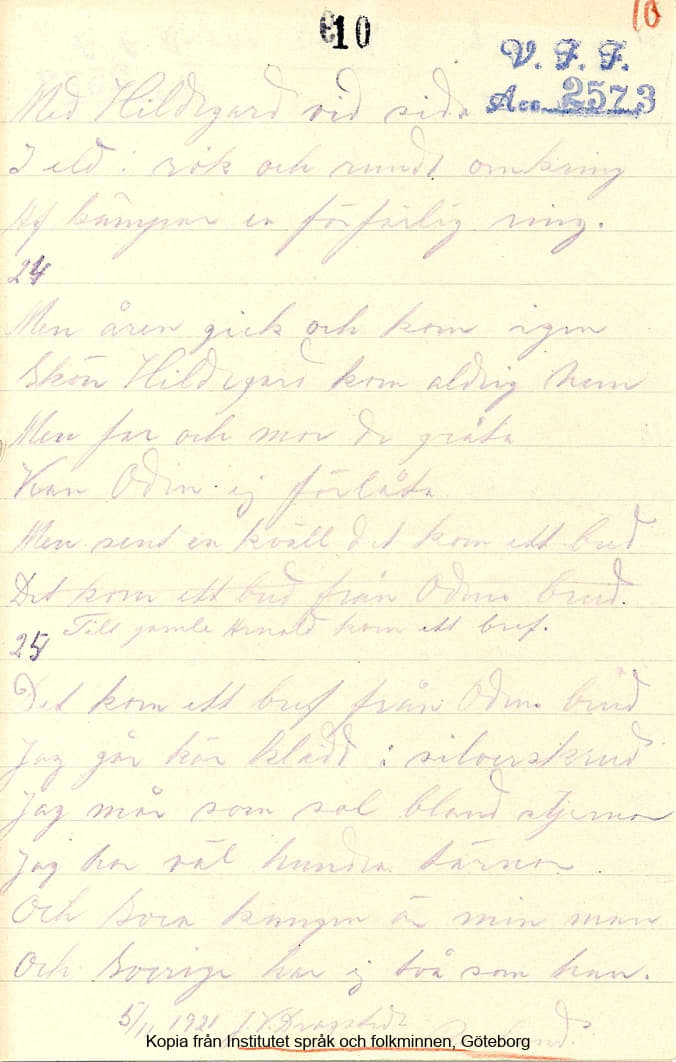 10
10
V. F. F.
Acc. 2573
Med Hildegard vid sida
I eld i rök och rundt omkring
Af kämpar en förfärlig ring.
24
Men åren gick och kom igen
Skön Hildegard kom aldrig hem
Men far och mor de gråta
Kan Odin ej förlåta
Men sent en kväll det kom ett bud
Det kom ett bud från Odins brud.
Till gamle Arnold kom ett bref.
25
Det kom ett bref från Odins brud
Jag går här klädd i silverskrud
Jag mår som sol bland stjernor
Jag har väl hundra tärnor
Och Svea kungen är min man
Och Sverige har ej två som han.
5/11 1921
Kopia från Institutet språk och folkminnen, Göteborg